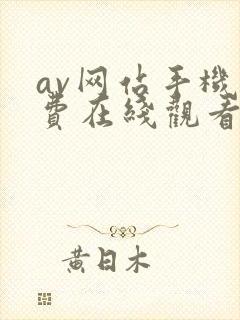 av网佔手機
費在綫觀看
黃日木